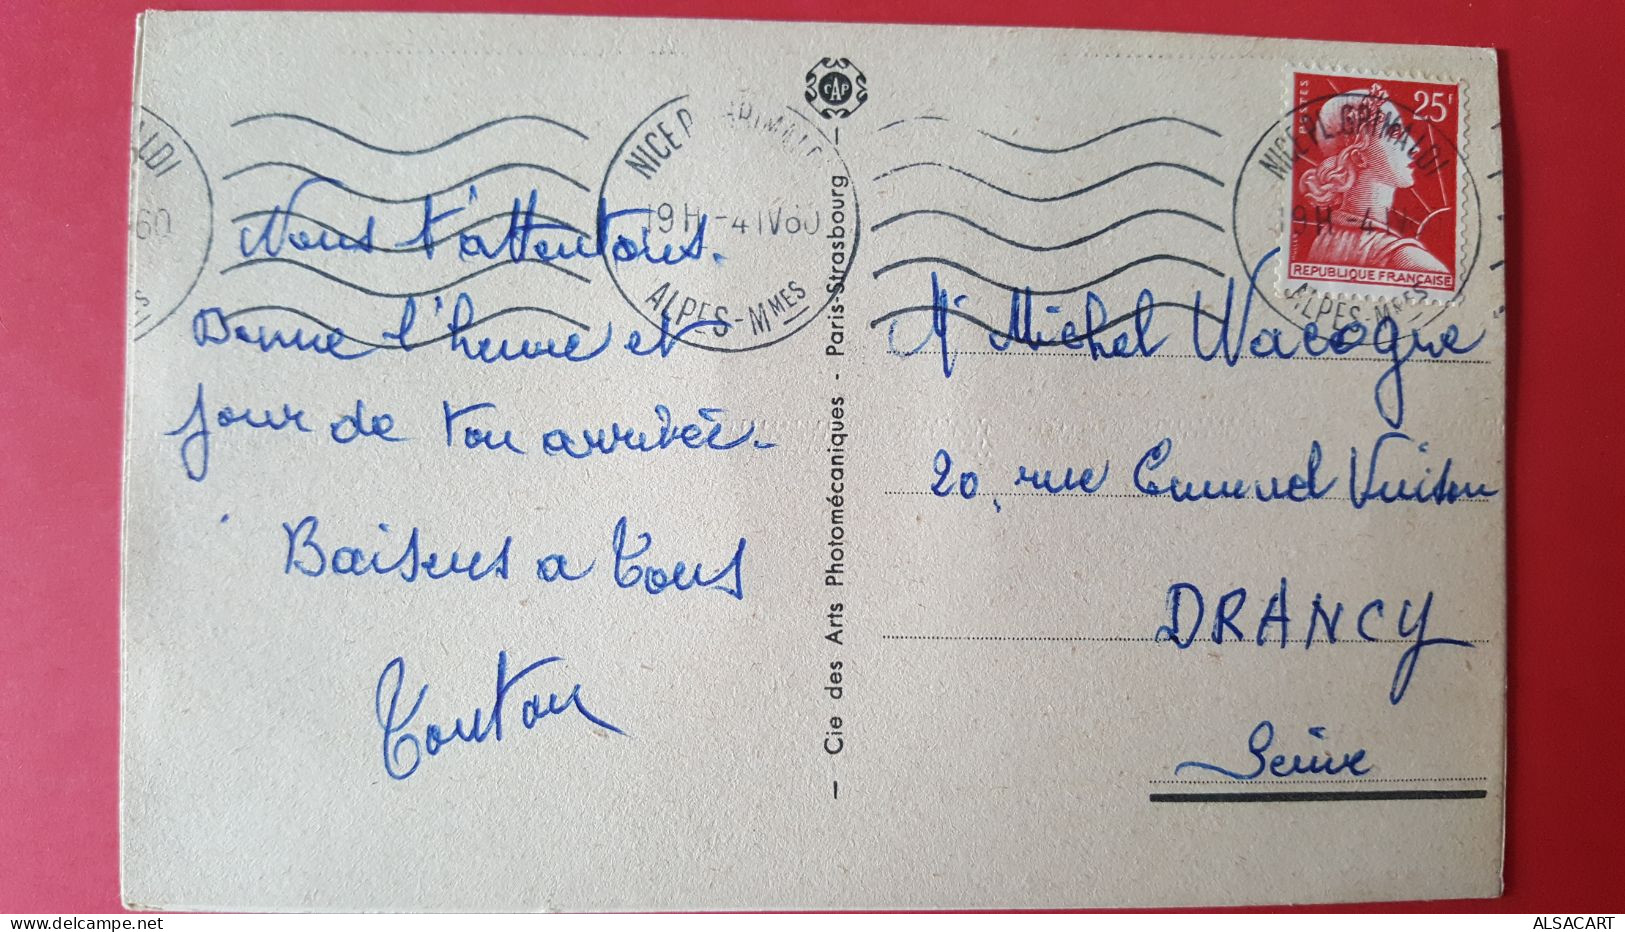 Nous t'attendons.
Donne l'heure et
jour de ton arrivée.
Baisers a tous
Tonton
Cie des Arts Photomécaniques - Paris-Strasbourg
CAP
NICE PL. GRIMALDI
19H -4 IV 60
ALPES-MMES
POSTES
25F
REPUBLIQUE FRANÇAISE
NICE PL. GRIMALDI
19H -4 IV
ALPES-MMES
LDI
60
Mr Michel Vacogne
20, rue
DRANCY
Seine
delcampe.net
ALSACART